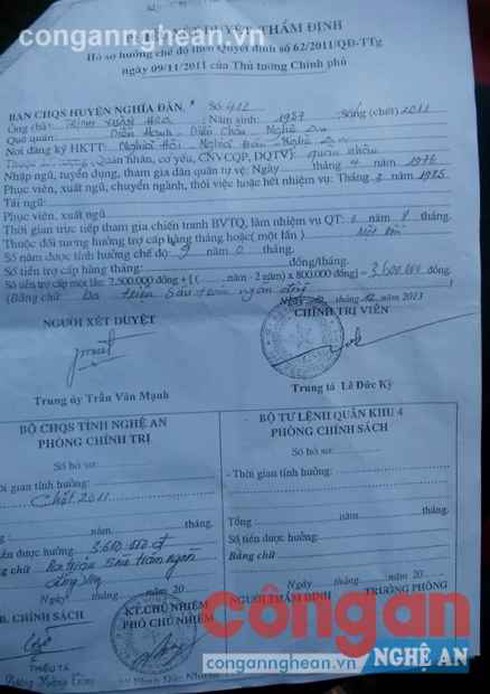 congannghean.vn
XÉT DUYỆT, THẨM ĐỊNH
Hồ sơ hưởng chế độ theo Quyết định số 62/2011/QĐ-TTg
ngày 09/11/2011 của Thủ tướng Chính phủ
BAN CHQS HUYỆN NGHĨA ĐÀN. Số 412
Ông (bà): Năm sinh: 1957 Sống (chết) 2011
Quê quán: Diễn Châu, Nghệ An
Nơi đăng ký HKTT: Nghĩa Đàn Nghệ An
Quân nhân, cơ yếu, CNVCQP, DQTV) quân nhân
Nhập ngũ, tuyển dụng, tham gia dân quân tự vệ: Ngày tháng 4 năm 1976
Phục viên, xuất ngũ, chuyển ngành, thôi việc hoặc hết nhiệm vụ: Tháng 2 năm 1985
Tái ngũ:
Phục viên, xuất ngũ
Thời gian trực tiếp tham gia chiến tranh BVTQ, làm nhiệm vụ QT: năm 8 tháng.
Thuộc đối tượng hưởng trợ cấp hàng tháng hoặc ( một lần ) Một lần
Số năm được tính hưởng chế độ 9 năm 0 tháng.
Số tiền trợ cấp hàng tháng: đồng/tháng.
Số tiền trợ cấp một lần: 2.500.000 đồng + [ ( năm - 2 năm) x 800.000 đồng] = đồng.
(Bằng chữ: Ba triệu sáu trăm ngàn đồng
Ngày tháng 12 năm 2013
NGƯỜI XÉT DUYỆT
CHÍNH TRỊ VIÊN
Trung úy Trần Văn Mạnh
Trung tá Lê Đức Kỳ
BỘ CHQS TỈNH NGHỆ AN
PHÒNG CHÍNH TRỊ
Số hồ sơ:
ời gian tính hưởng:
Chết 2011
năm tháng.
ền được hưởng:
chữ Ba triệu sáu trăm ngàn
Ngày tháng năm 20
B. CHÍNH SÁCH
KT. CHỦ NHIỆM
PHÓ CHỦ NHIỆM
THIẾU TÁ
BỘ TƯ LỆNH QUÂN KHU 4
PHÒNG CHÍNH SÁCH
Số hồ sơ:
- Thời gian tính hưởng:
Tổng năm tháng.
Số tiền được hưởng:
Bằng chữ:
Ngày tháng năm 20
NGƯỜI THẨM ĐỊNH TRƯỞNG PHÒNG
Công an
congannghean.vn NGHỆ AN